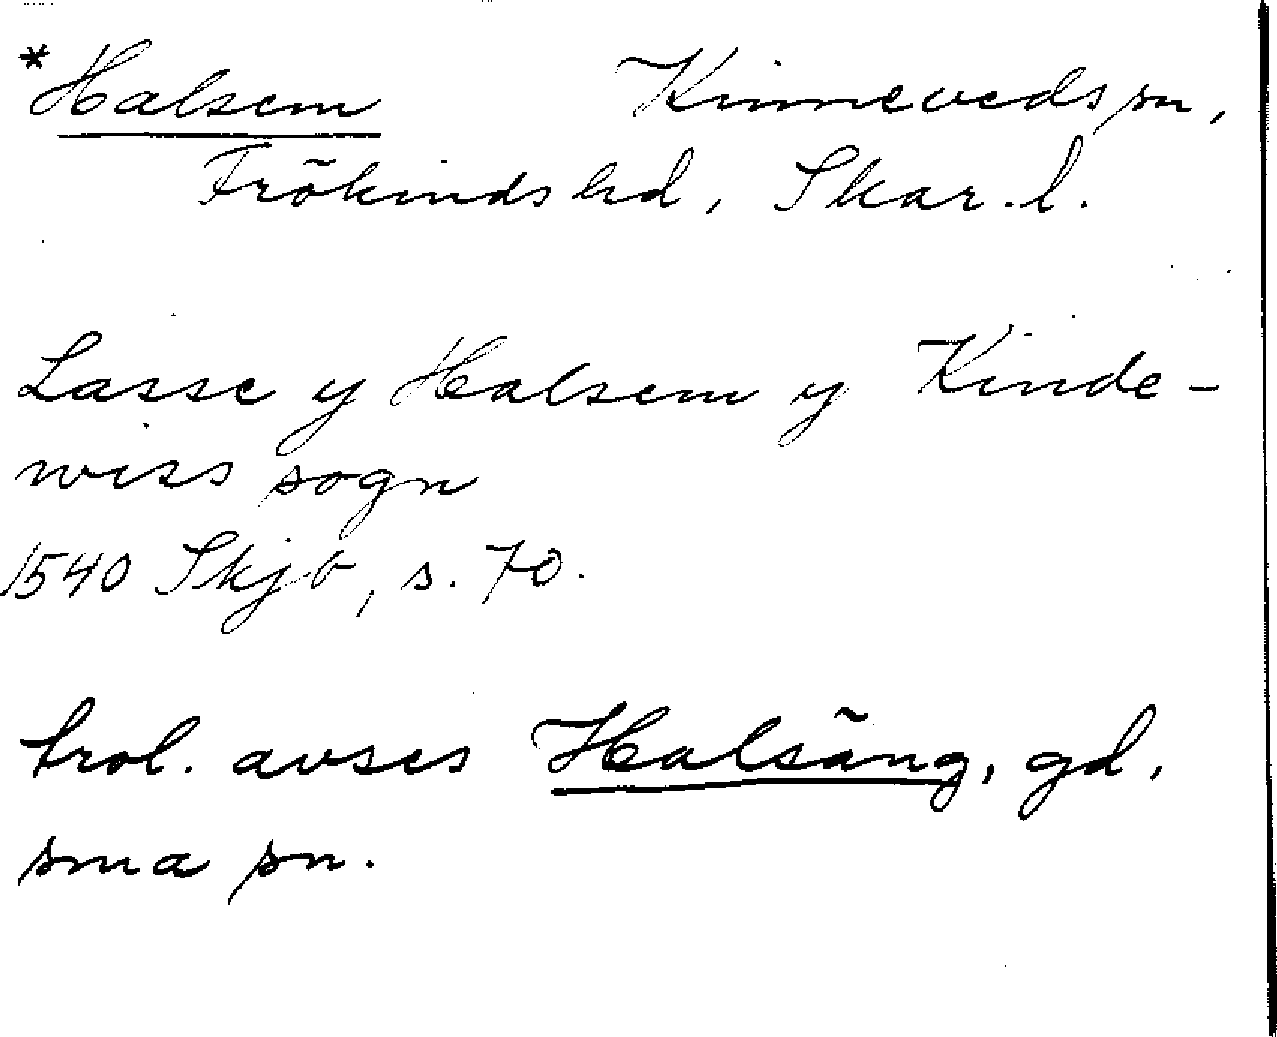 *Halsem Kinneveds sn,
Frökinds hd, Skar. l.
Lasse y Halsem y Kinde-
wiss sogn
1540 Skjb, s. 70.
trol. avses Halsäng, gd,
sma sn.